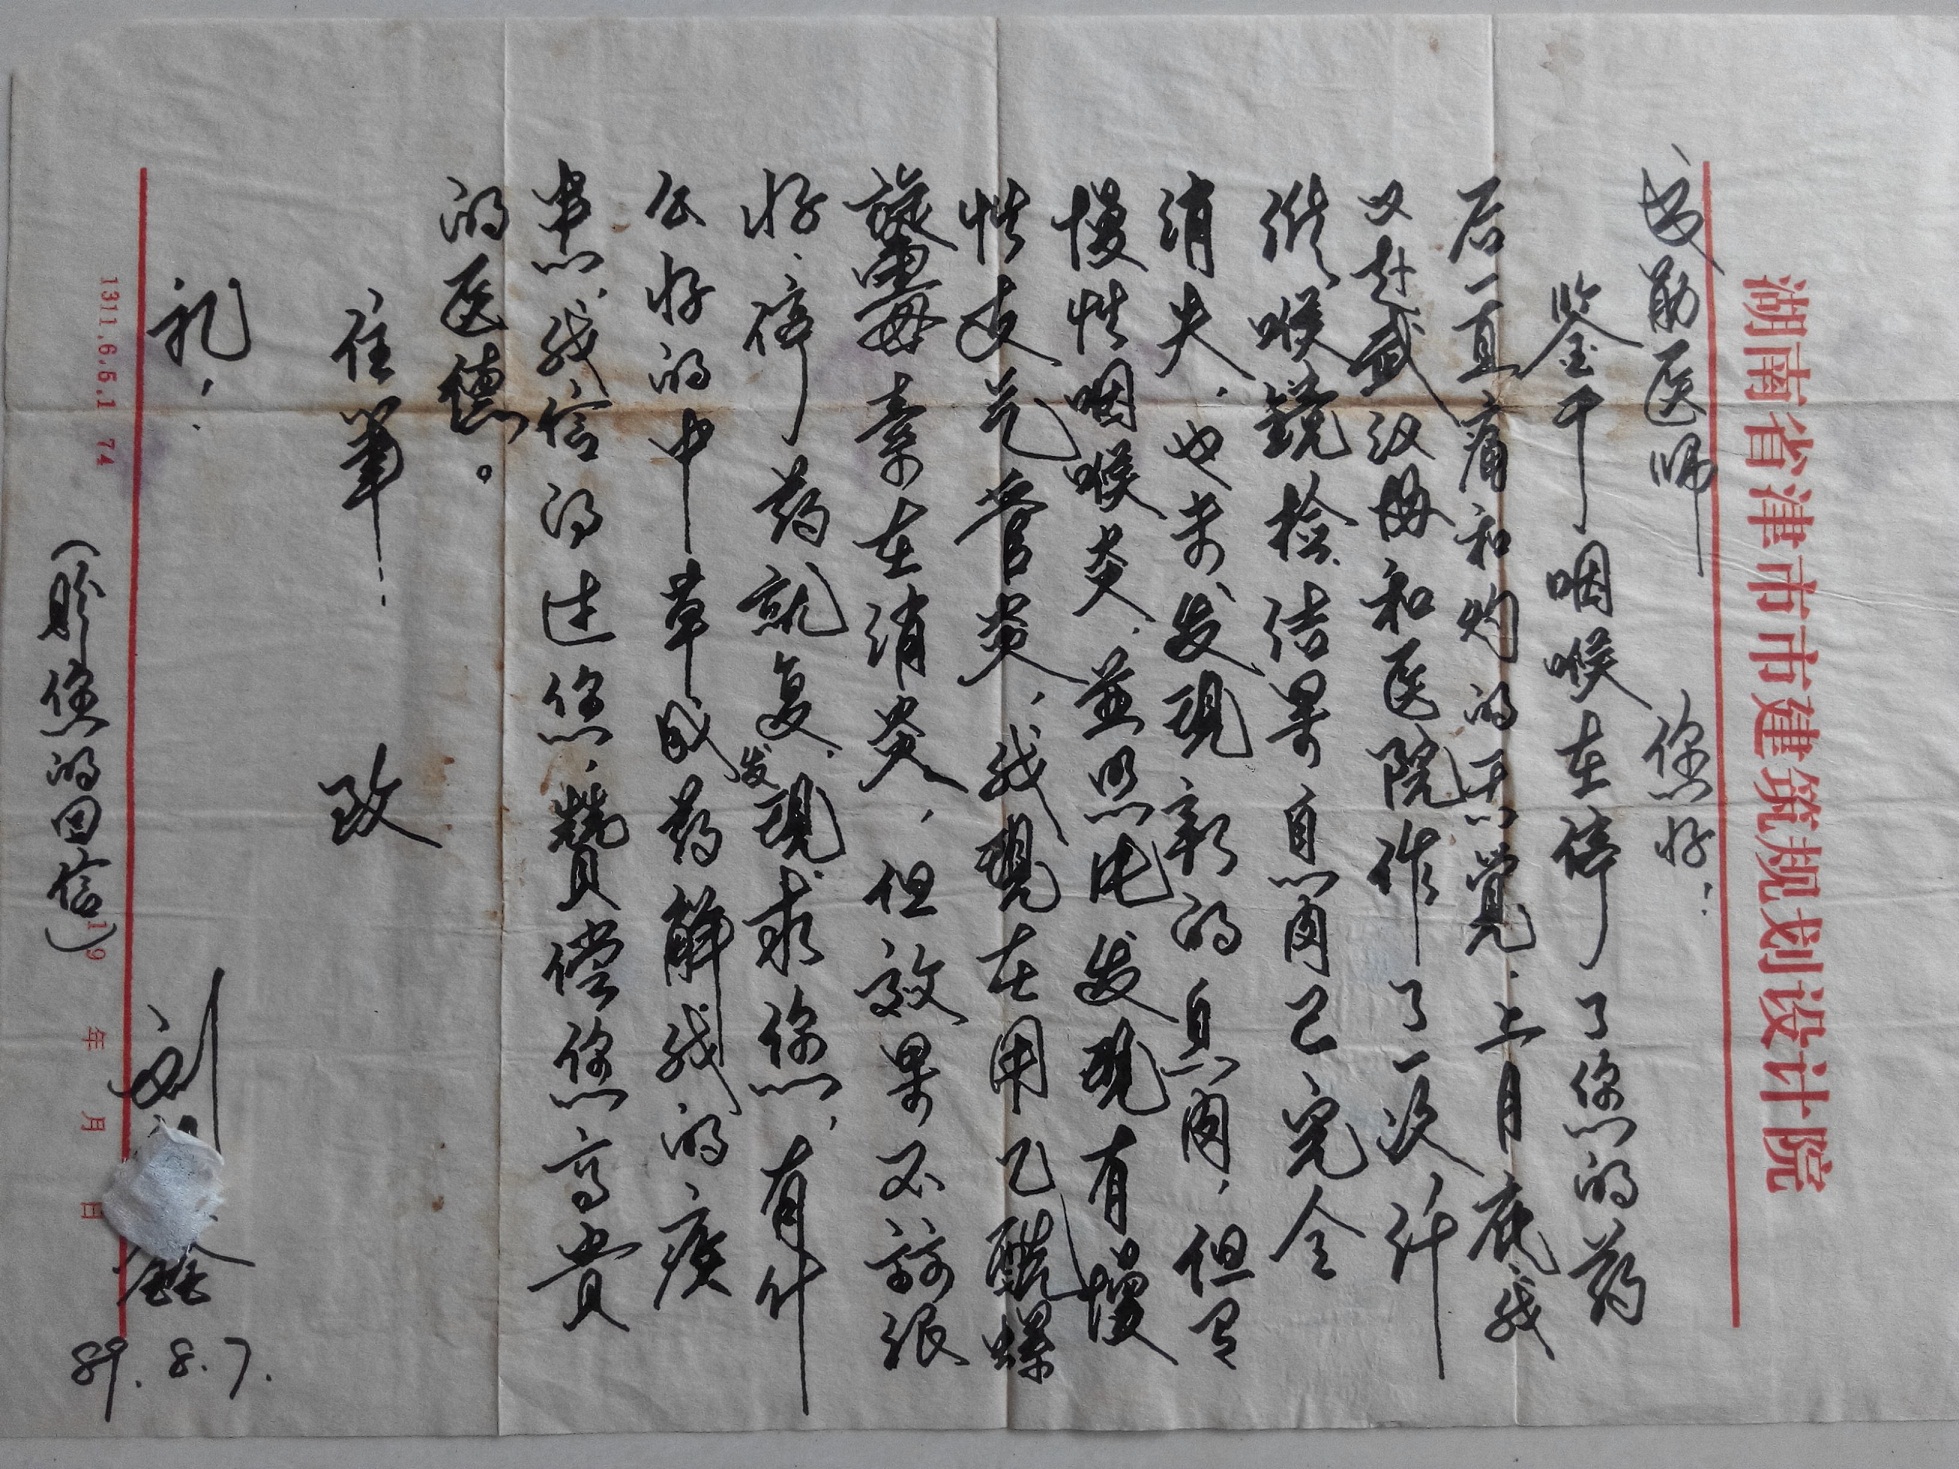 湖南省津市市建筑规划设计院
成勋医师 您好！
鉴于咽喉在停了您的药
后一直痛和灼的感觉，上月底我
又赴武汉协和医院作了一次纤
维喉镜检，结果息肉已完全
消失，也未发现新的息肉，但是
慢性咽喉炎，并照片发现有慢
性支气管炎，我现在用乙酰螺
旋霉素在消炎，但效果不该很
好，停药就复发，现求您，有什
么好的中草成药解我的痰
患，我信得过您，赞偿您高贵
的医德。
住笔…
致
礼！
刘 鑫
89.8.7.
（盼您的回信）
19 年 月 日
1311.6.6.1 74